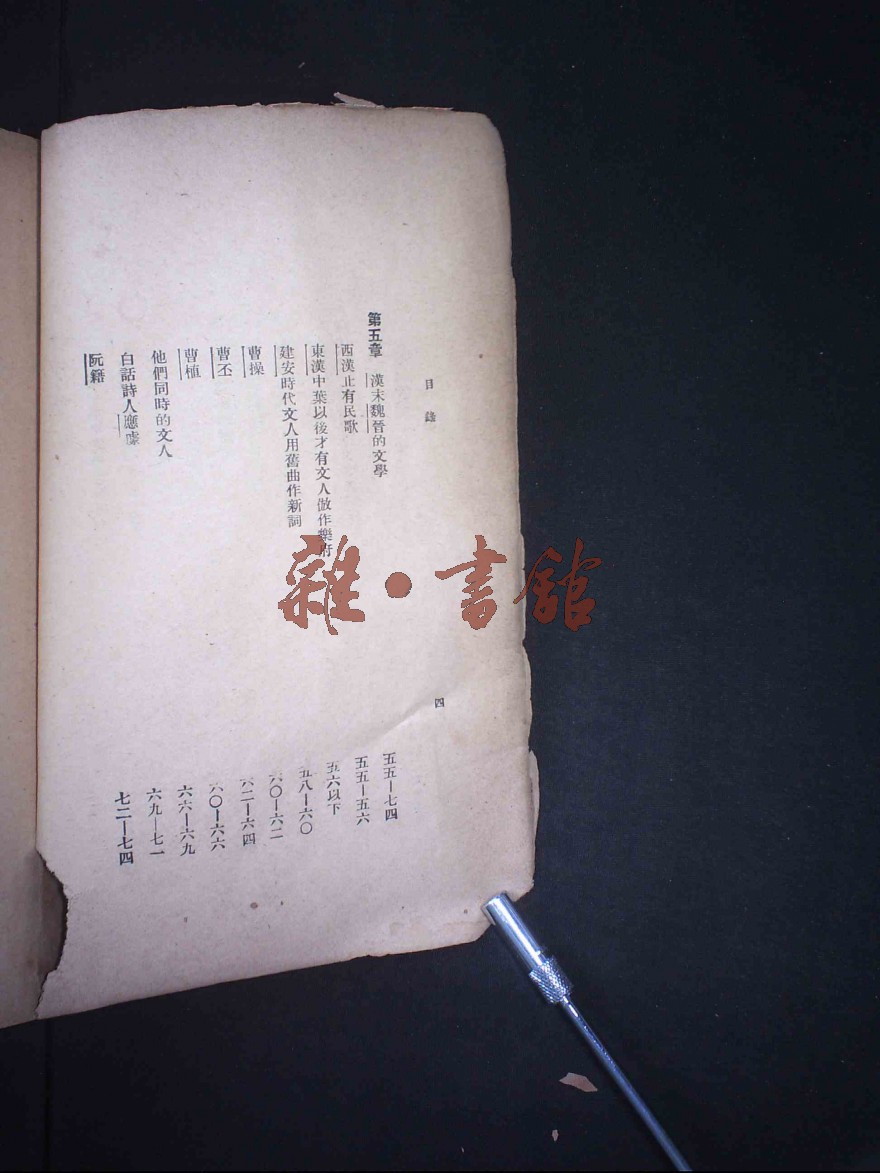 目錄 四
第五章 漢末魏晉的文學 五五—七四
西漢止有民歌 五五—五六
東漢中葉以後才有文人倣作樂府 五六以下
建安時代文人用舊曲作新詞 五八—六〇
曹操 六〇—六二
曹丕 六二—六四
曹植 六〇—六六
他們同時的文人 六六—六九
白話詩人應璩 六九—七一
阮籍 七二—七四
雜·書館